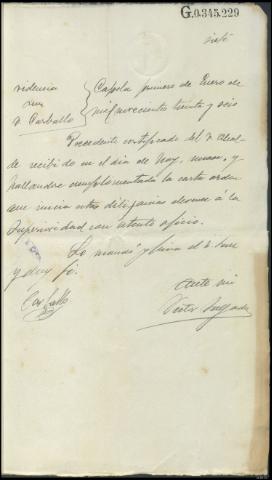 G.0.345.229
Providencia Juez Sr Carballo
Capela primero de Enero de
mil novecientos treinta y seis
Precedente certificado del Sr Alcal-
de recibido en el dia de hoy, unase, y
hallandose cumplimentada la carta orden
que inicia estas diligencias elevense á la
Superioridad con atento oficio.
Lo mandó y firma el Sr Juez
y doy fé.
Carballo
Ante mi
Victor